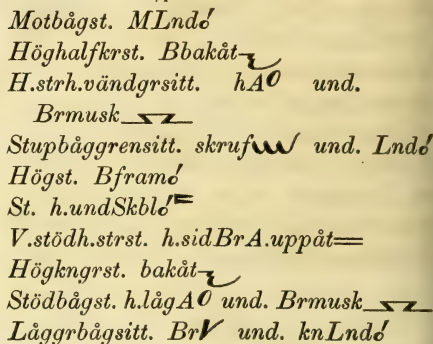 Motbågst. MLnd
Höghalfkrst. Bbakåt
H.strh.vändgrsitt. hA und.
Brmusk
Stupbåggrensitt. skruf und. Lnd
Högst. Bfram
St. h.undSkbl
V.stödh.strst. h.sidBrA.uppåt
Högkngrst. bakåt
Stödbågst. h.lågA und. Brmusk
Låggrbågsitt. Br und. knLnd